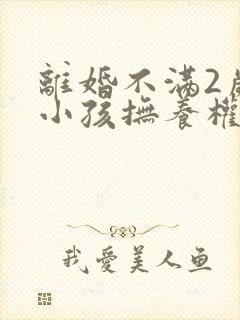 離婚不滿2
小孩撫養權
我愛美人鱼